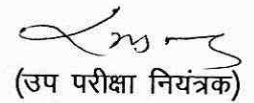 (उप परीक्षा नियंत्रक)